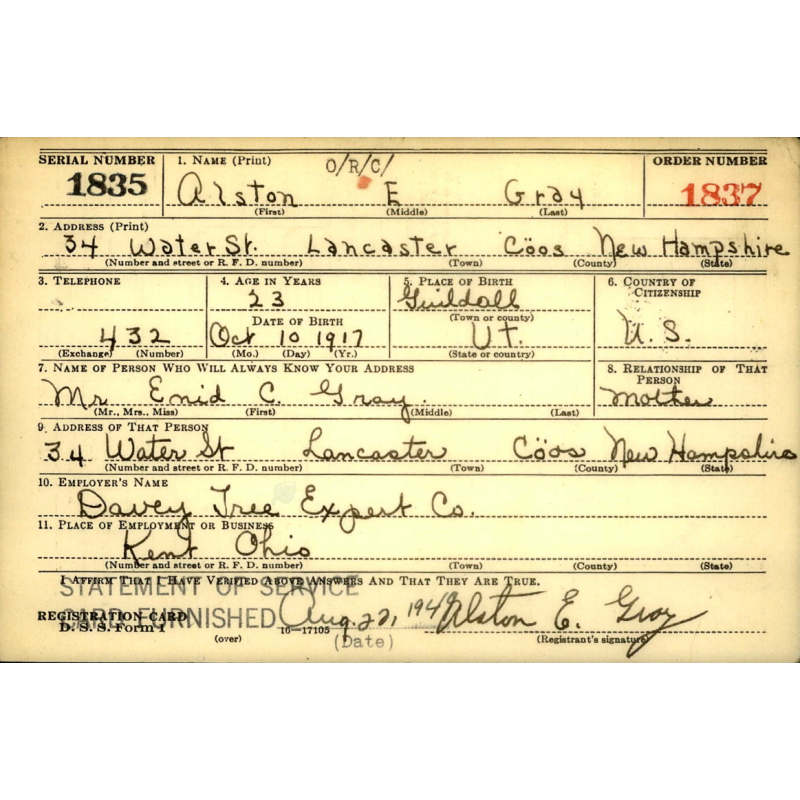 SERIAL NUMBER 1. NAME (Print) O/R/C/ ORDER NUMBER
1835 Alston E Gray 1837
(First) (Middle) (Last)
2. ADDRESS (Print)
34 Water St. Lancaster Cöos New Hampshire
(Number and street or R. F. D. number) (Town) (County) (State)
3. TELEPHONE 4. AGE IN YEARS 5. PLACE OF BIRTH 6. COUNTRY OF CITIZENSHIP
23 Guildall
DATE OF BIRTH (Town or county)
432 Oct 10 1917 Vt. U.S.
(Exchange) (Number) (Mo.) (Day) (Yr.) (State or country)
7. NAME OF PERSON WHO WILL ALWAYS KNOW YOUR ADDRESS 8. RELATIONSHIP OF THAT PERSON
Mr Enid C. Gray. Mother
(Mr., Mrs., Miss) (First) (Middle) (Last)
9. ADDRESS OF THAT PERSON
34 Water St Lancaster Cöos New Hampshire
(Number and street or R. F. D. number) (Town) (County) (State)
10. EMPLOYER'S NAME
Davey Tree Expert Co.
11. PLACE OF EMPLOYMENT OR BUSINESS
Kent Ohio
(Number and street or R. F. D. number) (Town) (County) (State)
I AFFIRM THAT I HAVE VERIFIED ABOVE ANSWERS AND THAT THEY ARE TRUE.
STATEMENT OF SERVICE
CARD FURNISHED Aug. 22, Alston E. Gray
REGISTRATION CARD
D. S. S. Form 1 16—17105 (Registrant's signature)
(over) (Date)